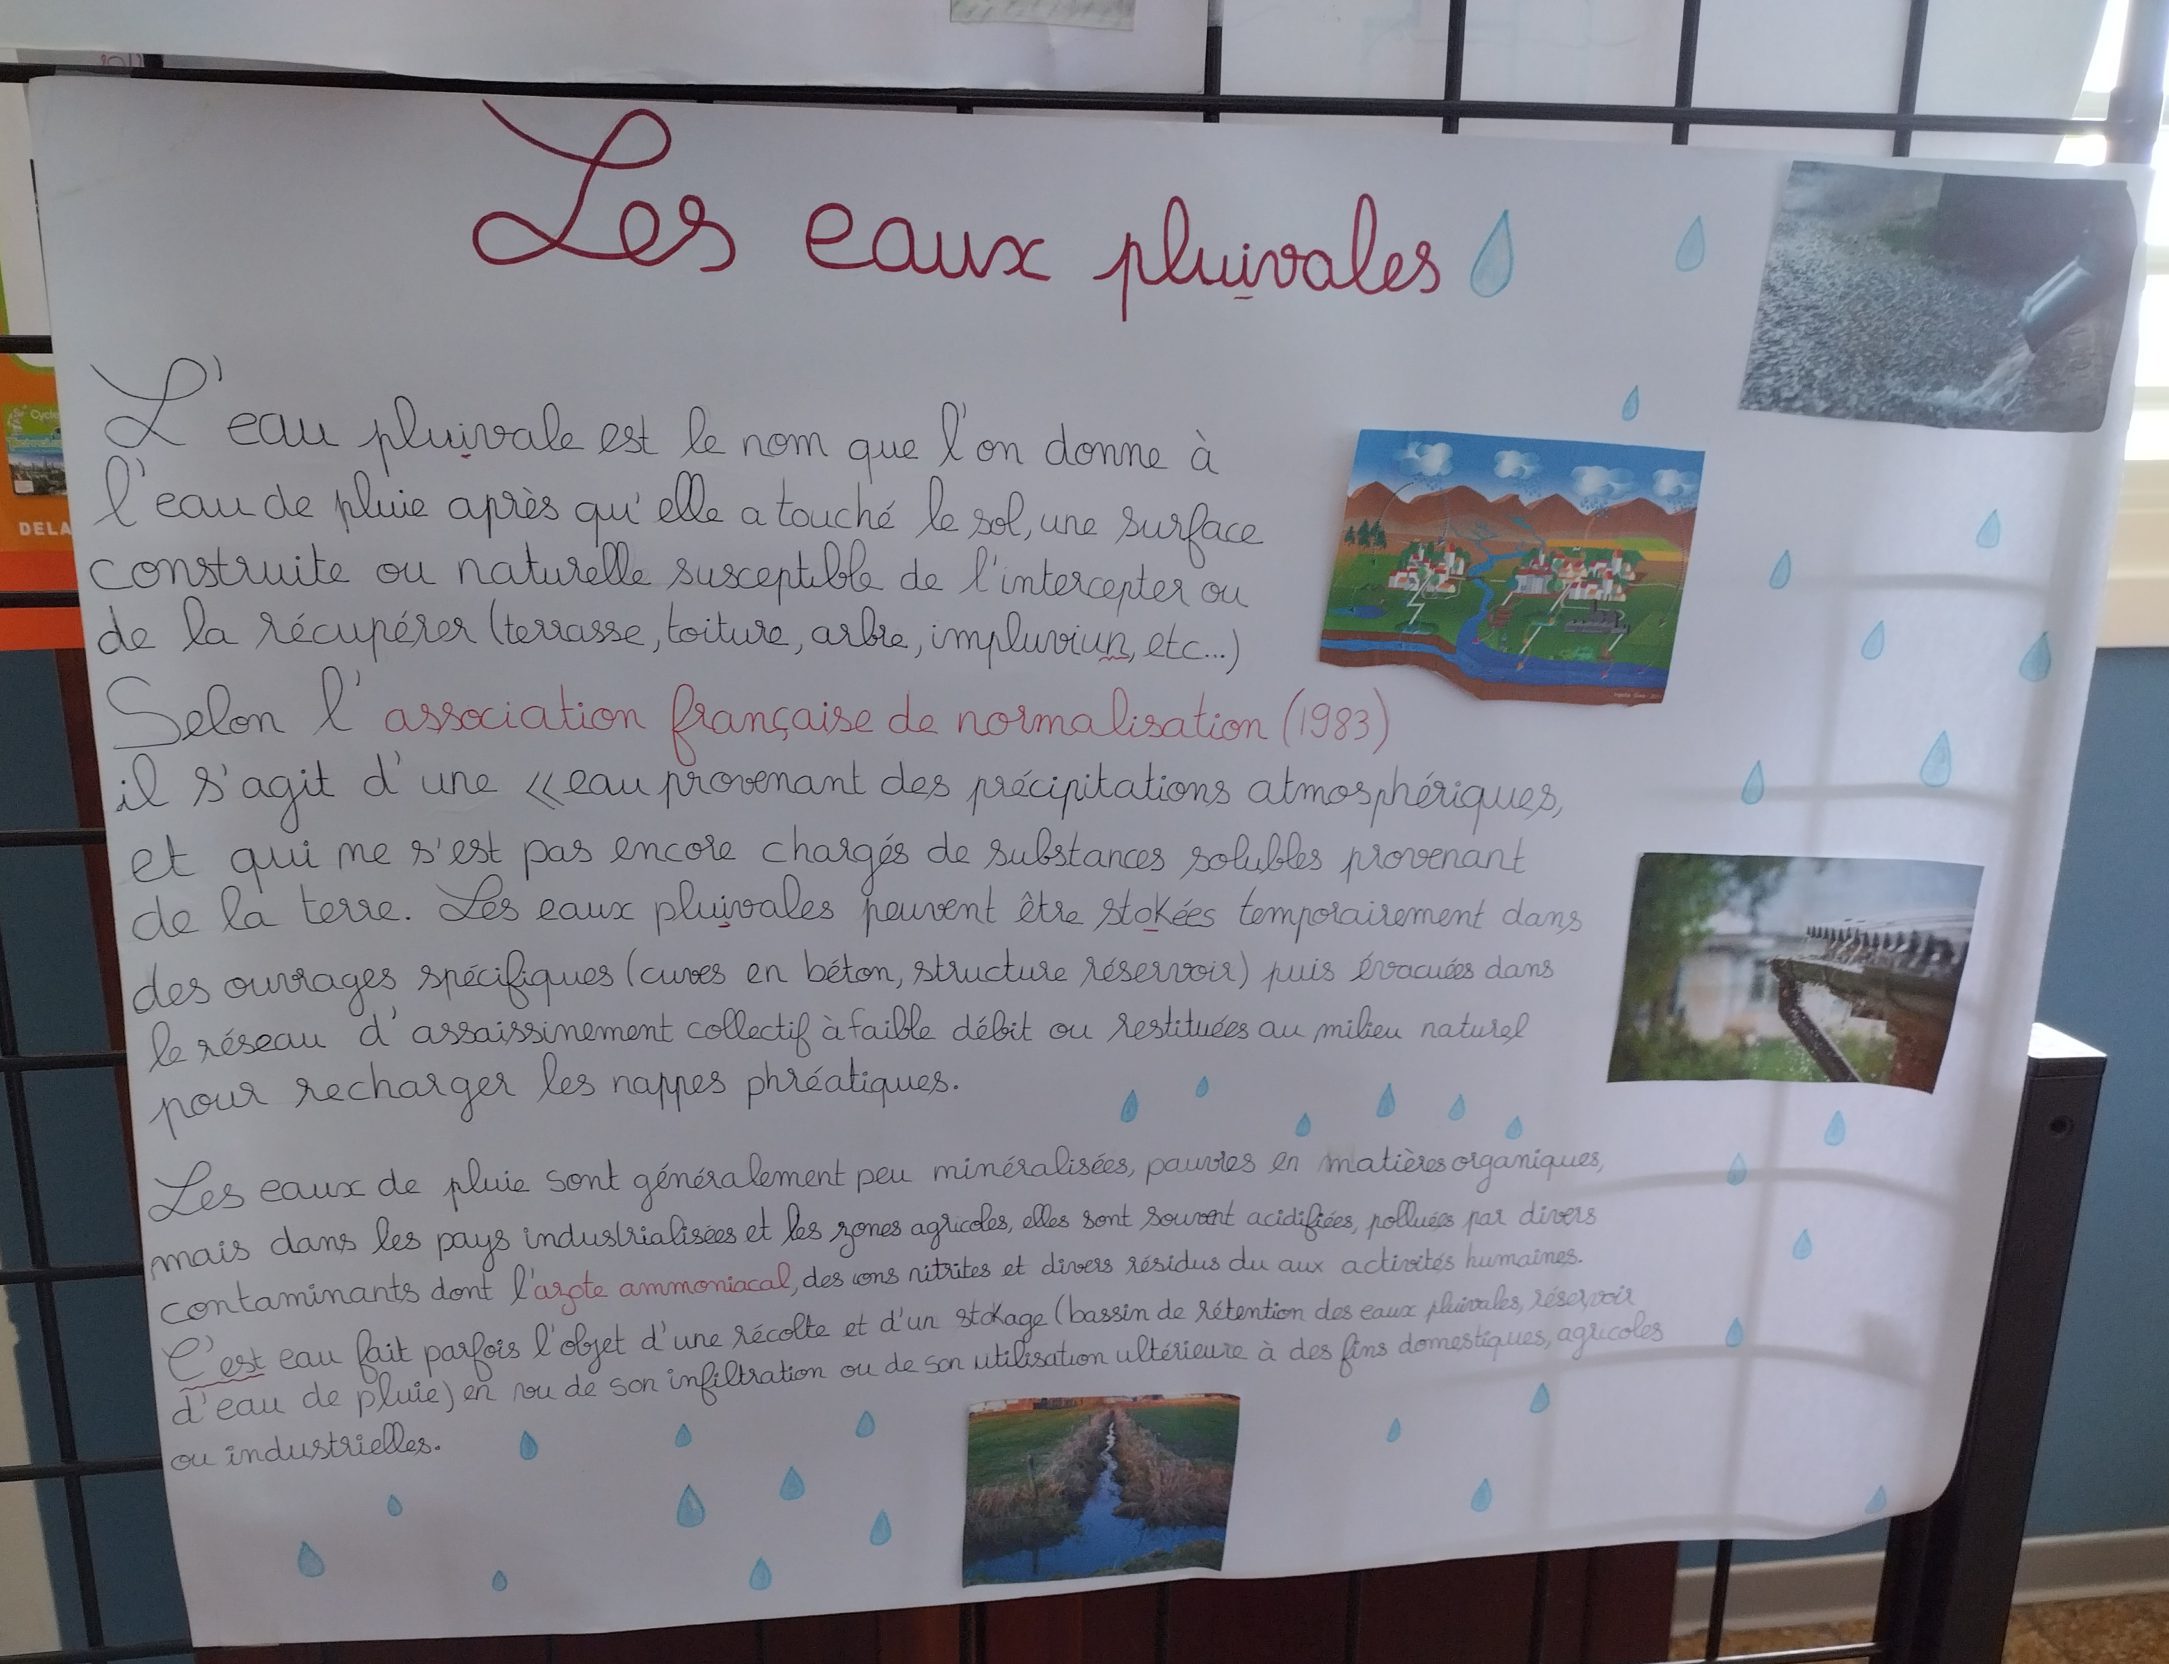 Les eaux pluivales
L'eau pluivale est le nom que l'on donne à
l'eau de pluie après qu'elle a touché le sol, une surface
construite ou naturelle susceptible de l'intercepter ou
de la récupérer (terrasse, toiture, arbre, impluviun, etc...)
Selon l'association française de normalisation (1983)
il s'agit d'une « eau provenant des précipitations atmosphériques,
et qui me s'est pas encore chargés de substances solubles provenant
de la terre. Les eaux pluivales peuvent être stokées temporairement dans
des ouvrages spécifiques (cuves en béton, structure réservoir) puis évacuées dans
le réseau d'assaissinement collectif à faible débit ou restituées au milieu naturel
pour recharger les nappes phréatiques.
Les eaux de pluie sont généralement peu minéralisées, pauvres en matières organiques,
mais dans les pays industrialisées et les zones agricoles, elles sont souvent acidifiées, polluées par divers
contaminants dont l'azote ammoniacal, des ions nitrites et divers résidus du aux activités humaines.
C'est eau fait parfois l'objet d'une récolte et d'un stokage (bassin de rétention des eaux pluivales, réservoir
d'eau de pluie) en vu de son infiltration ou de son utilisation ultérieure à des fins domestiques, agricoles
ou industrielles.
Cycle
DELA